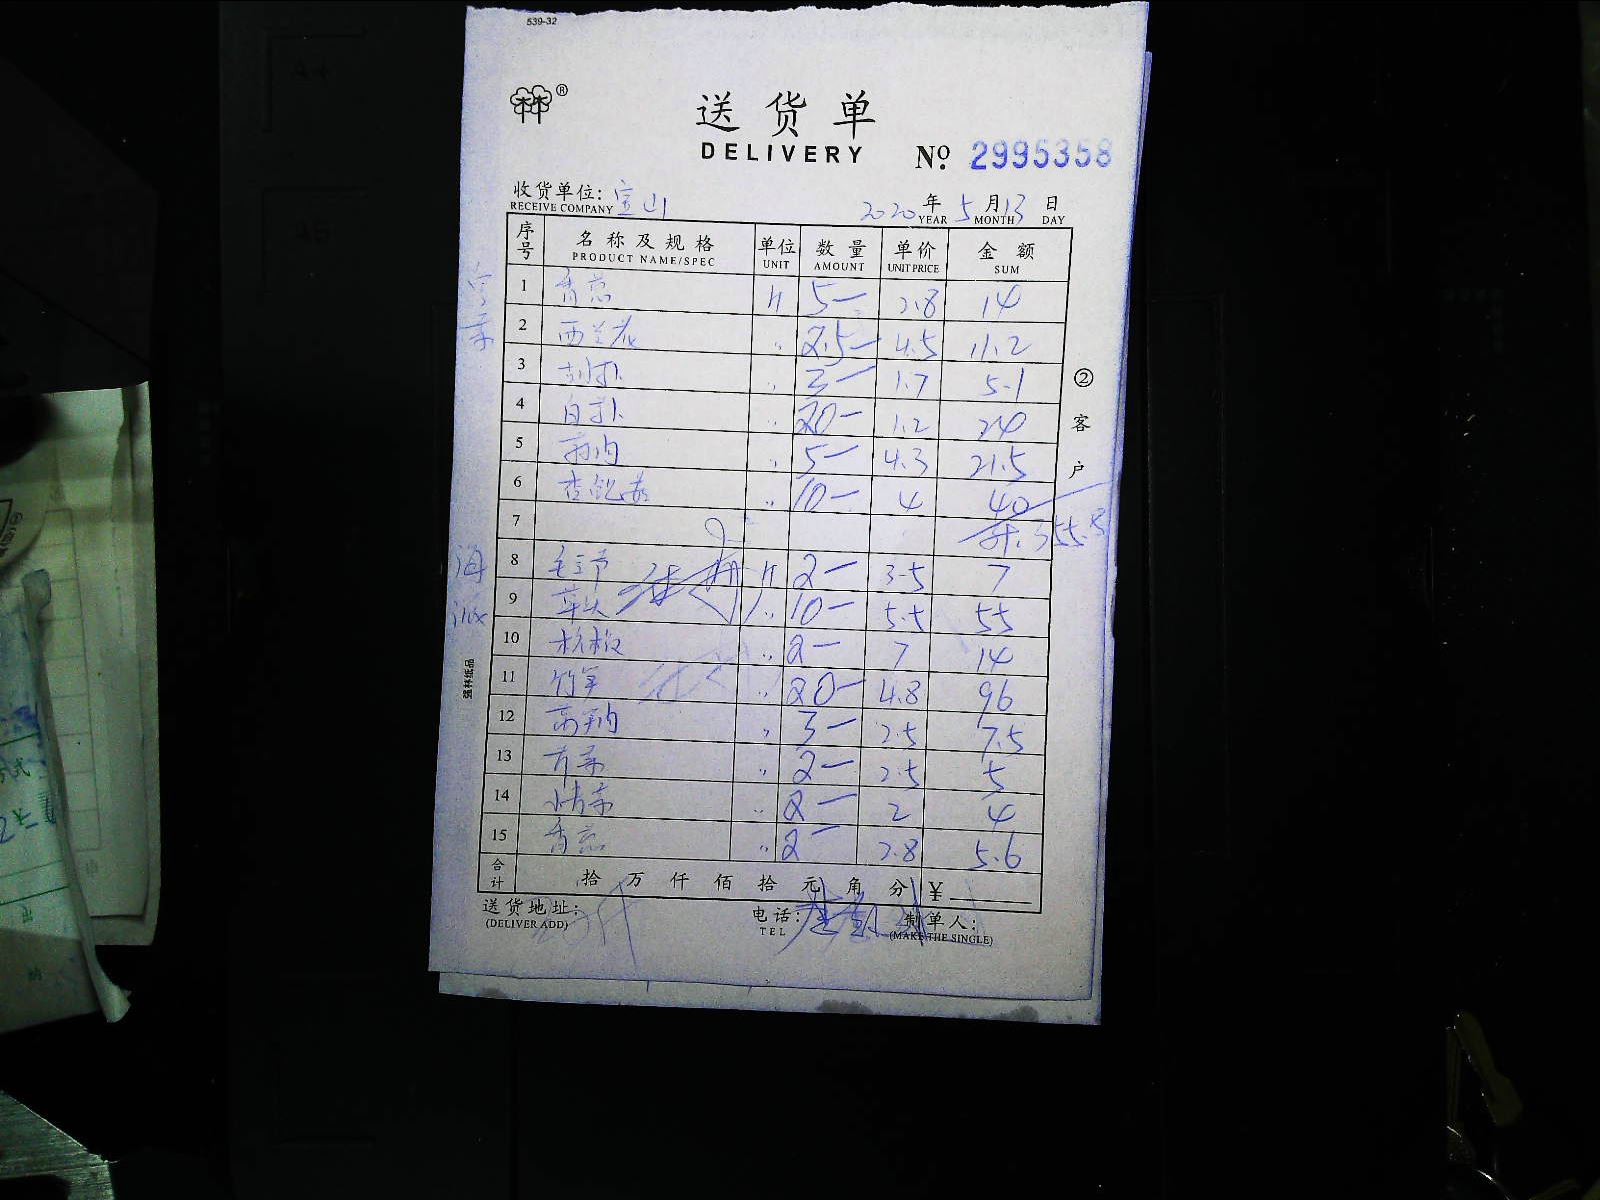 539-32
送货单
DELIVERY № 2995358
收货单位: 宝山 2020年 5月 13日
RECEIVE COMPANY YEAR MONTH DAY
序号 名称及规格 单位 数量 单价 金额
PRODUCT NAME/SPEC UNIT AMOUNT UNIT PRICE SUM
1 香葱 斤 5— 2.8 14
2 西兰花 〃 2.5— 4.5 11.2
3 胡卜 〃 3— 1.7 5.1
4 白卜 〃 20— 1.2 24
5 〃 5— 4.3 21.5
6 杏鲍菇 〃 10— 4 40
7 355.8
8 毛豆节 斤 2— 3.5 7
9 〃 10— 5.5 55
10 杭椒 〃 2— 7 14
11 〃 20— 4.8 96
12 〃 3— 2.5 7.5
13 〃 2— 2.5 5
14 〃 2— 2 4
15 香葱 〃 2— 2.8 5.6
合计 拾 万 仟 佰 拾 元 角 分 ¥
送货地址: 电话: 制单人:
(DELIVER ADD) TEL (MAKE THE SINGLE)
②客户
海
强林纸品